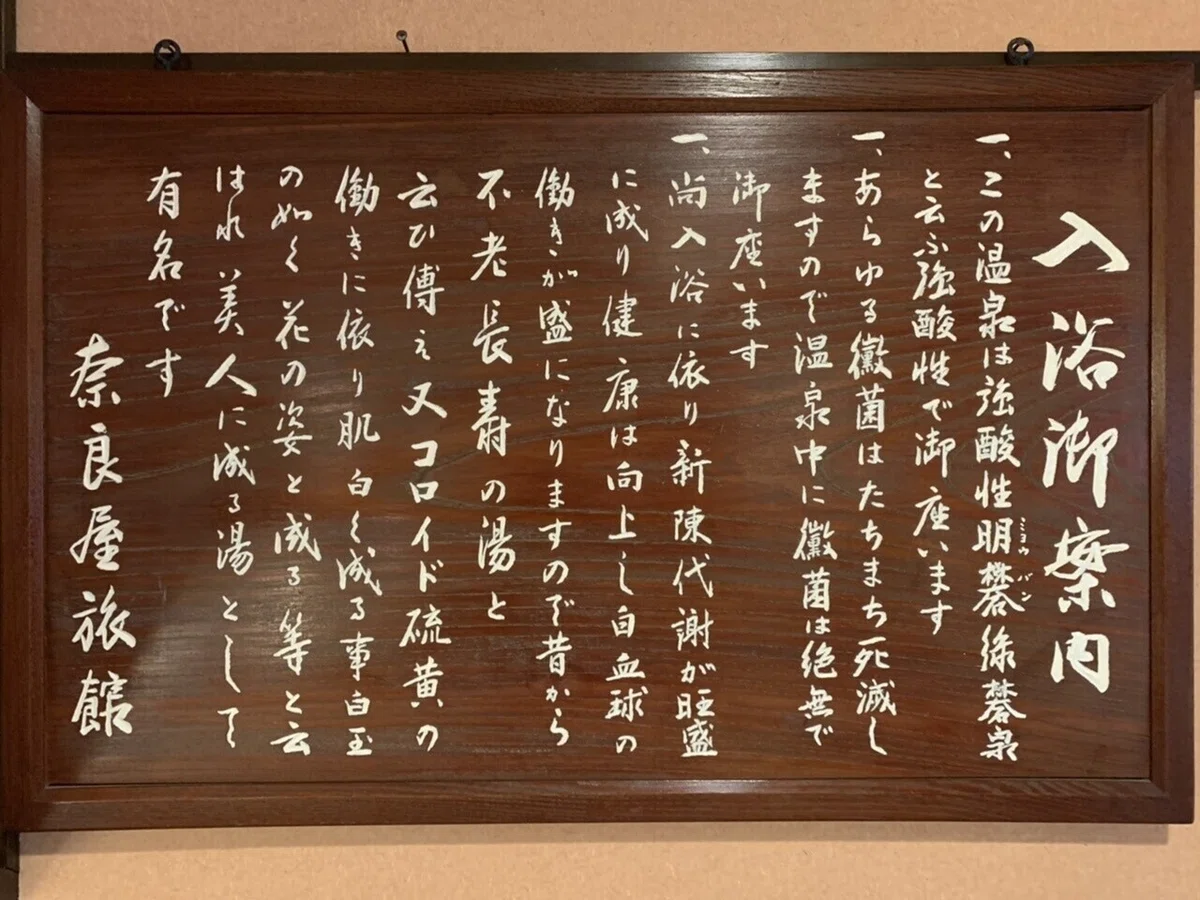 入浴御案内
一、この温泉は強酸性明礬緑礬泉
ミョウバン
と云ふ強酸性で御座います
一、あらゆる黴菌はたちまち死滅し
ますので温泉中に黴菌は絶無で
御座います
一、尚入浴に依り新陳代謝が旺盛
に成り健康は向上し自血球の
働きが盛になりますので昔から
不老長寿の湯と
云ひ傳え又コロイド硫黄の
働きに依り肌白く成る事白玉
の如く花の姿と成る等と云
はれ美人に成る湯として
有名です
奈良屋旅館